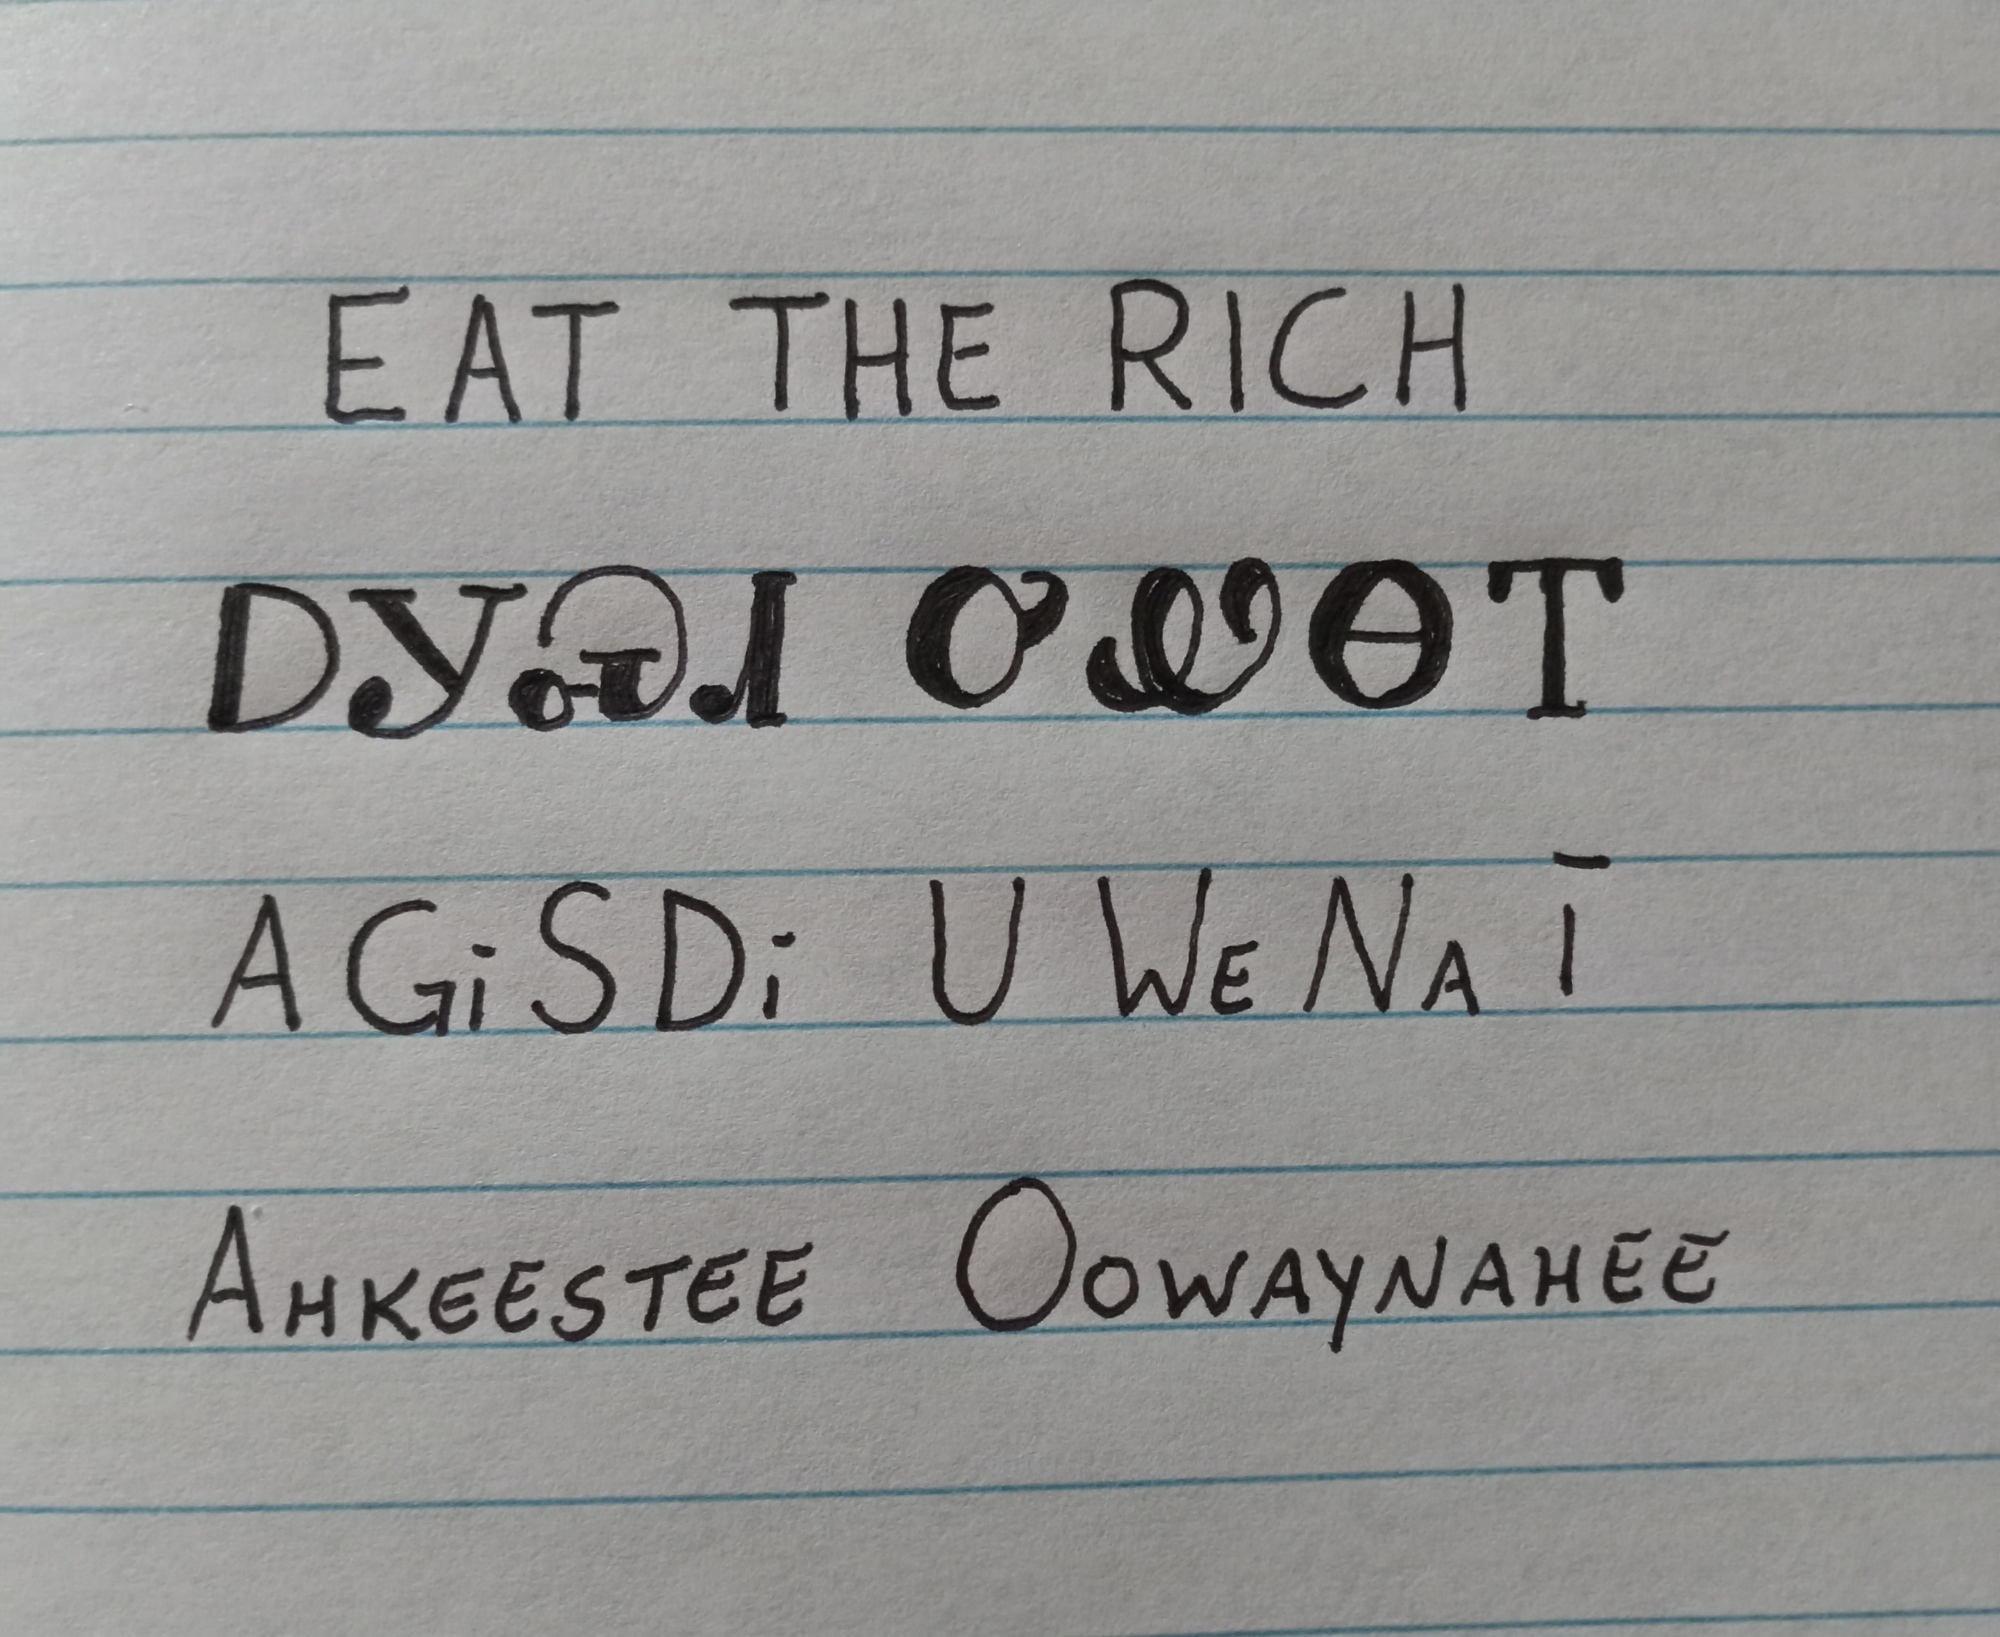 EAT THE RICH
ᎠᎩᏍᏗ ᎤᏪᎾᎢ
A Gi S Di U We Na Ī
AHKEESTEE OOWAYNAHEE